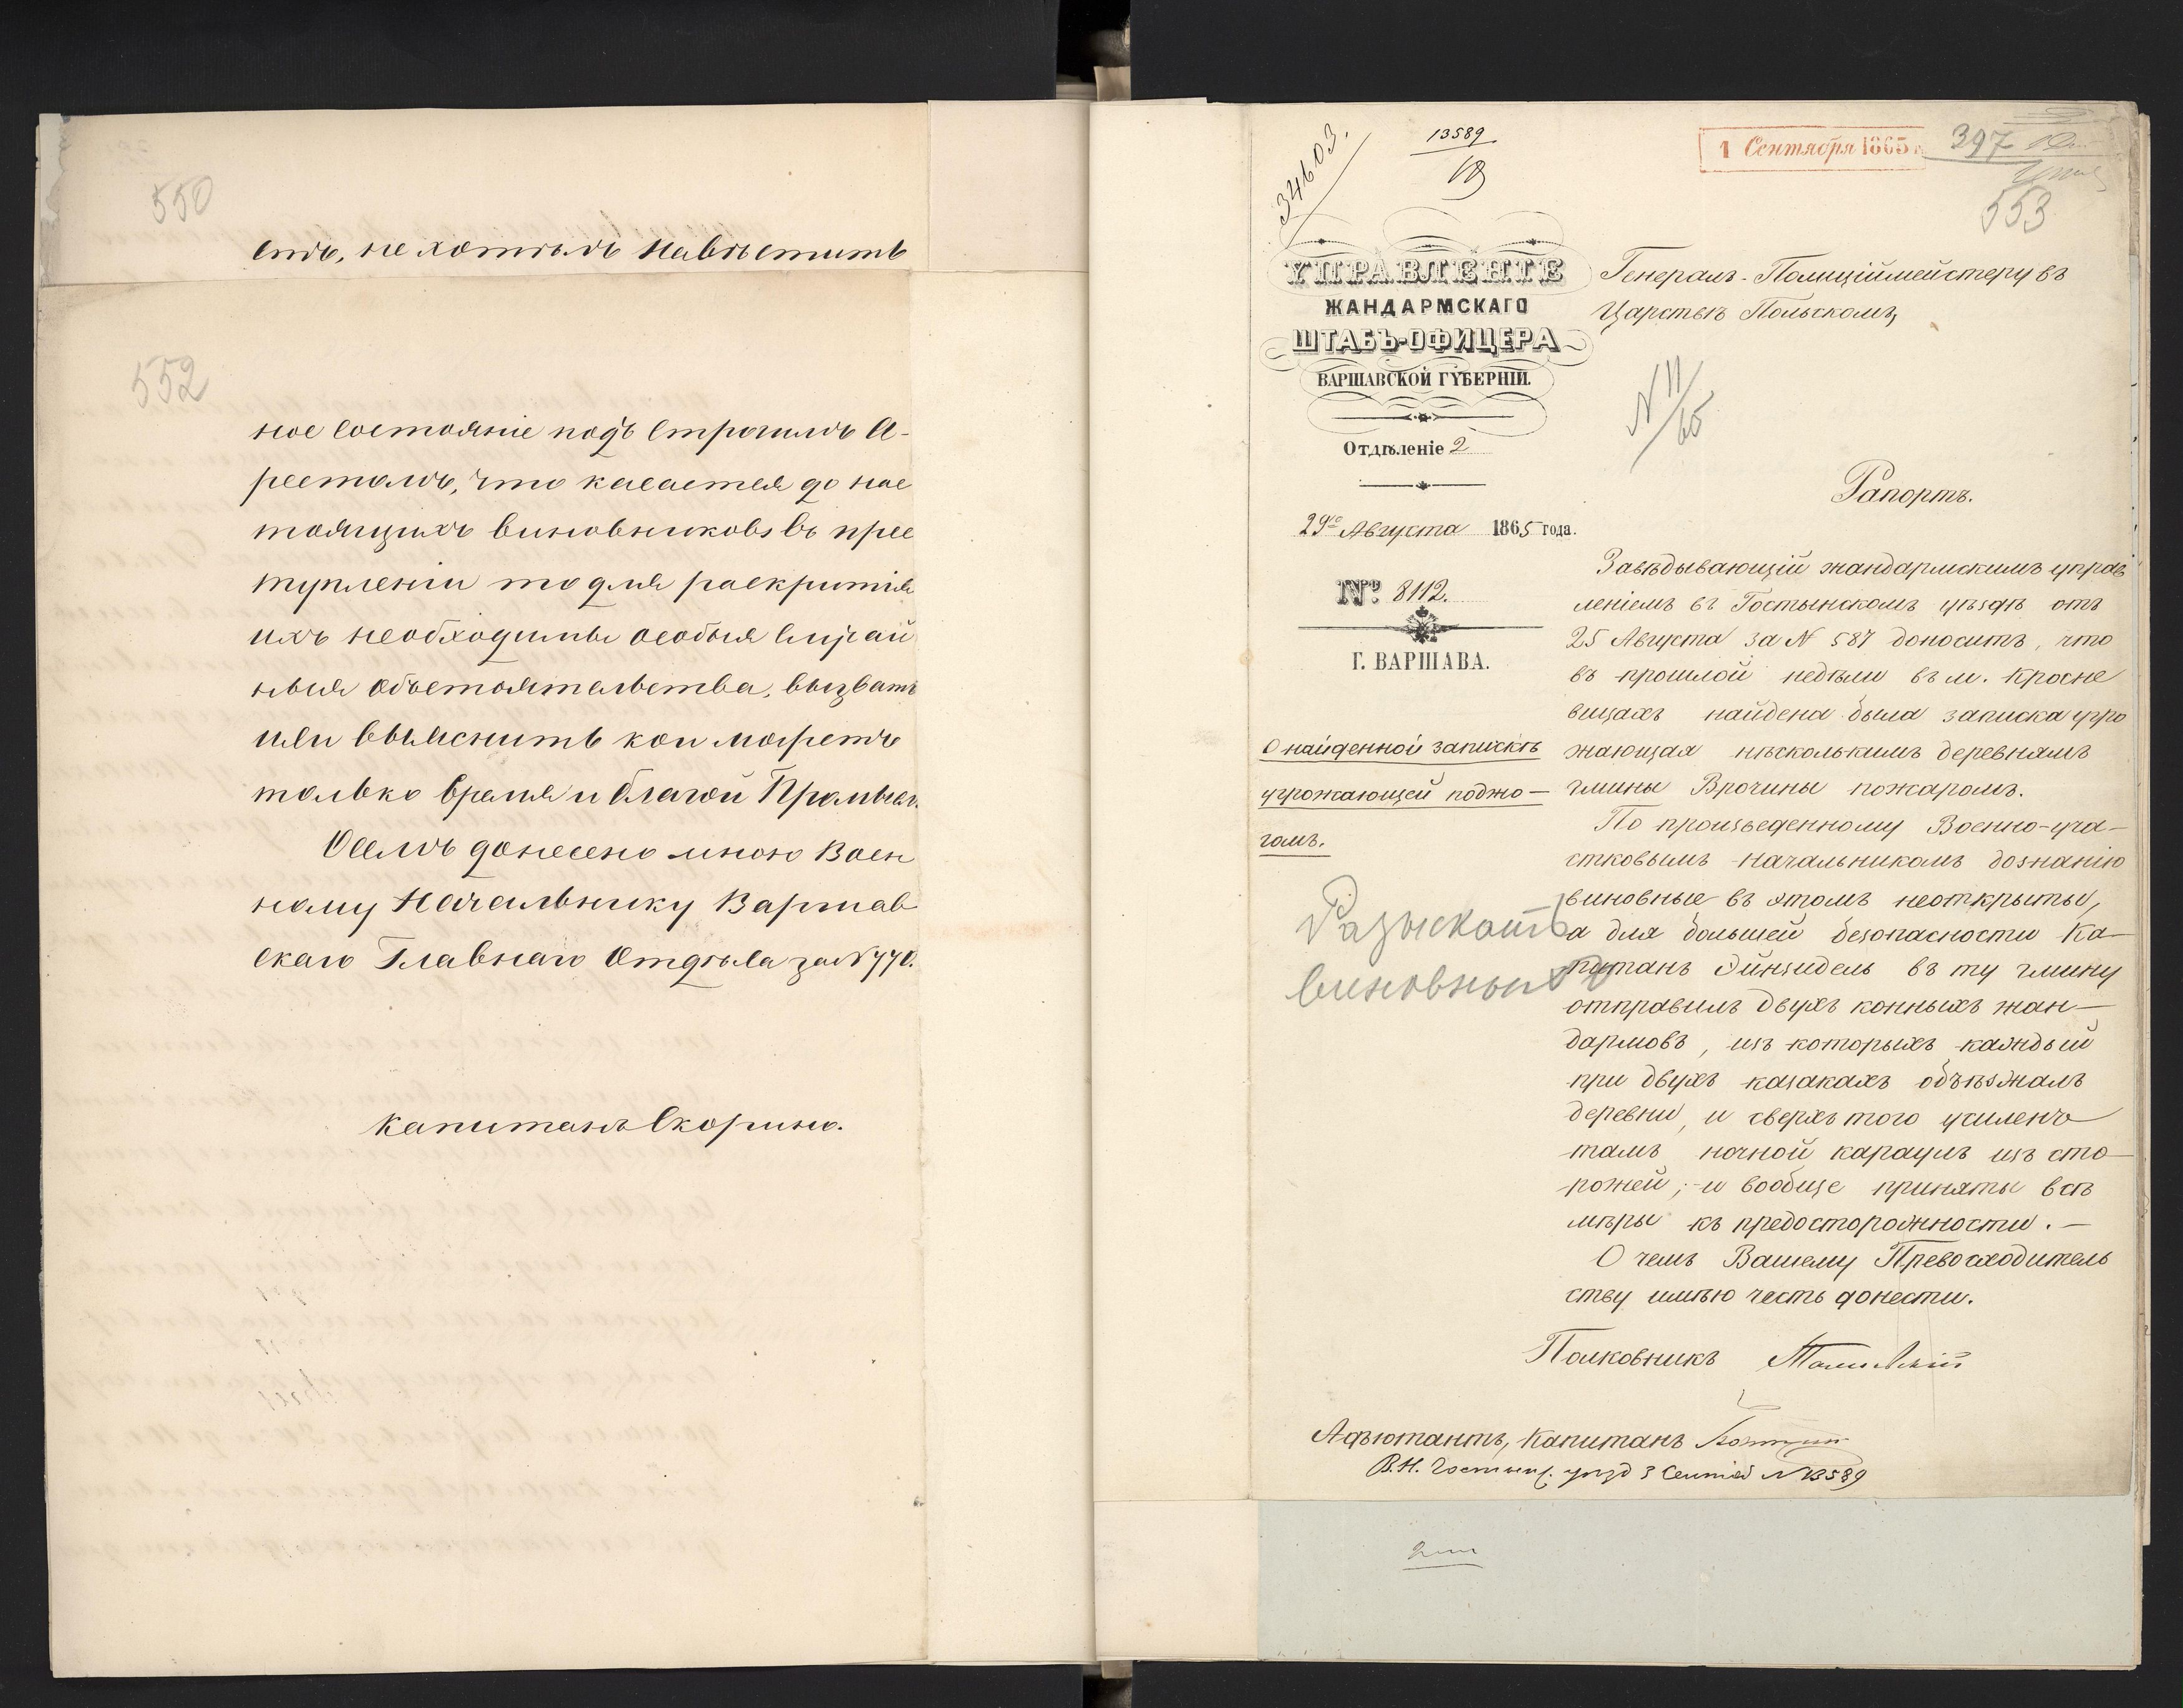 550
емъ, не хотѣлъ навѣстить
552
ное состояніе подъ строгимъ а-
рестомъ, что касается до нас
тоящихъ виновниковъ въ прес
тупленіи то для раскрытія
ихъ необходимы особыя случай
ныя обстоятельства, вызвать
или выяснить кои можетъ
только время и благой Промыслъ.
О семъ донесено мною Воен
ному Начальнику Варшав
скаго Главнаго Отдѣла за № 770.
Капитанъ
34603.
13589
1 Сентября 1865
397
553
УПРАВЛЕНІЕ
ЖАНДАРМСКАГО
ШТАБЪ-ОФИЦЕРА
ВАРШАВСКОЙ ГУБЕРНІИ.
Отдѣленіе 2
29го Августа 1865 года.
№ 8112.
Г. ВАРШАВА.
О найденной запискѣ
угрожающей поджо-
гомъ.
Разыскать
виновныхъ
Генералъ-Полиціймейстеру въ
Царствѣ Польскомъ,
N 11/65
Рапортъ.
Завѣдывающій жандармскимъ управ
леніемъ въ Гостынскомъ уѣздѣ отъ
25 Августа за N 587 доноситъ, что
въ прошлой недѣли въ м. Кросне
вицахъ найдена была записка угро
жающая нѣсколькимъ деревнямъ
гмины Врочины пожаромъ.
По произведенному Военно-уча-
стковымъ начальникомъ дознанію
виновные въ этомъ неоткрыты,
а для большей безопасности Ка-
питанъ Эйнзидель въ ту гмину
отправилъ двухъ конныхъ жан-
дармовъ, изъ которыхъ каждый
при двухъ казакахъ объѣзжалъ
деревни, и сверхъ того усиленъ
тамъ ночной караулъ изъ сто-
рожей; и вообще приняты всѣ
мѣры къ предосторожности.-
О чемъ Вашему Превосходитель
ству имѣю честь донести.
Полковникъ
Адъютантъ, Капитанъ
В.Н. Гостынс. уѣзд 3 Сентяб N 13589